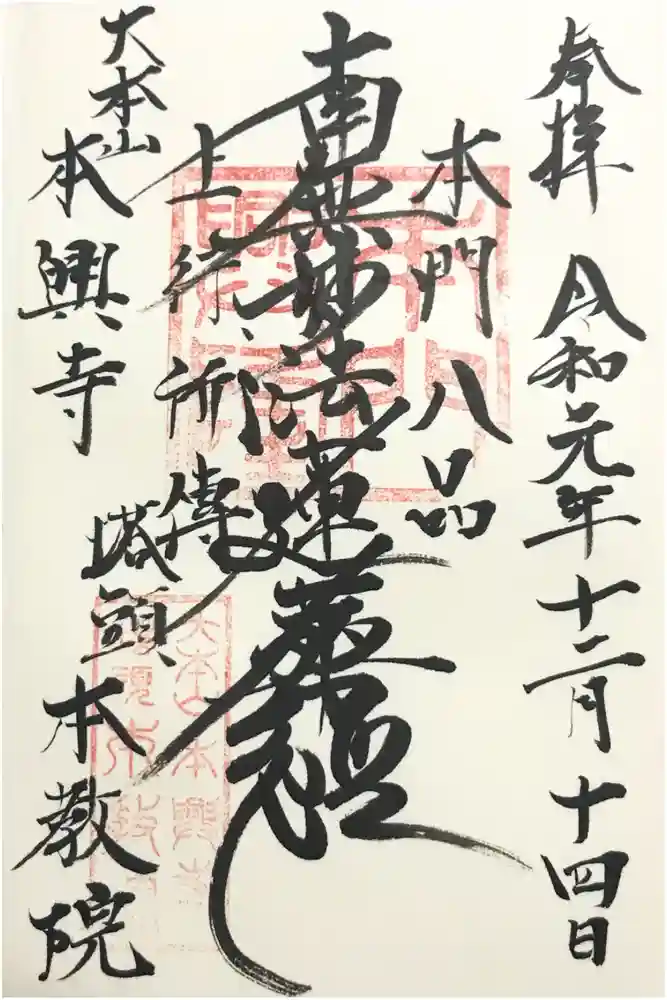 奉拝
令和元年十二月十四日
本門八品
南無妙法蓮華経
上行所傳
大本山
本興寺
塔頭
本教院